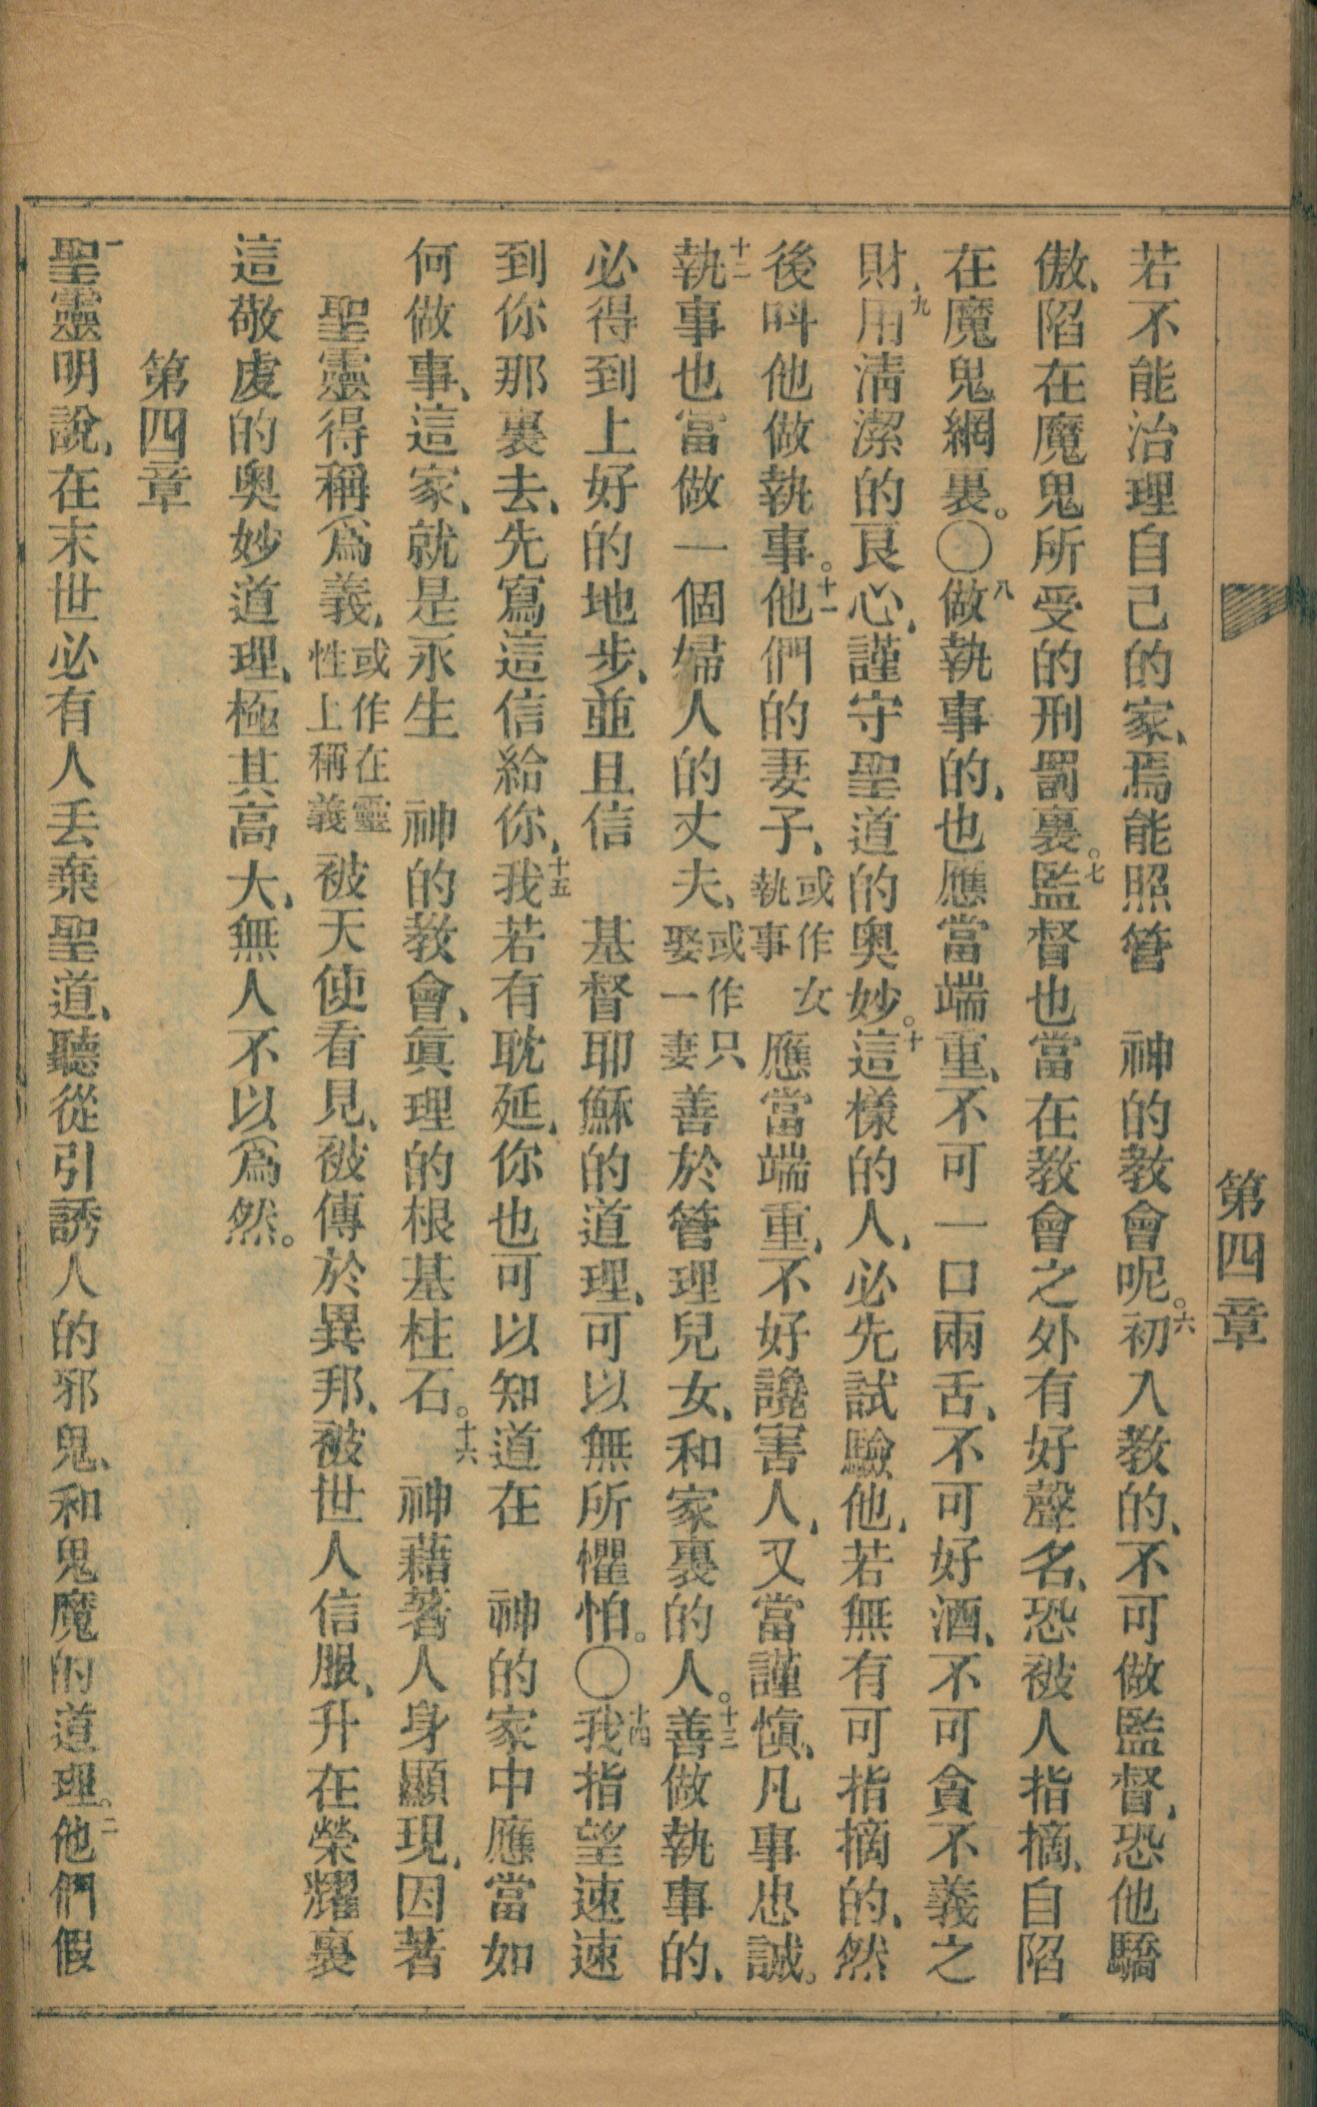 第四章
若不能治理自己的家、焉能照管　神的教會呢。六初入教的、不可做監督、恐他驕
傲、陷在魔鬼所受的刑罰裏。七監督也當在教會之外有好聲名、恐被人指摘、自陷
在魔鬼網裏。〇八做執事的、也應當端重、不可一口兩舌、不可好酒、不可貪不義之
財、九用淸潔的良心、謹守聖道的奧妙。十這樣的人、必先試驗他、若無有可指摘的、然
後呌他做執事。十一他們的妻子、或作女執事應當端重、不好讒害人、又當謹愼、凡事忠誠。
十二執事也當做一個婦人的丈夫、或作只娶一妻善於管理兒女、和家裏的人。十三善做執事的、
必得到上好的地步、並且信　基督耶穌的道理、可以無所懼怕。〇十四我指望速速
到你那裏去、先寫這信給你、十五我若有耽延、你也可以知道在　神的家中應當如
何做事、這家、就是永生　神的教會、眞理的根基柱石。十六　神藉著人身顯現、因著
聖靈得稱爲義、或作在靈性上稱義被天使看見、被傳於異邦、被世人信服、升在榮耀裏
這敬虔的奧妙道理、極其高大、無人不以爲然。
第四章
一聖靈明說、在末世必有人丟棄聖道、聽從引誘人的邪鬼、和鬼魔的道理。二他們假